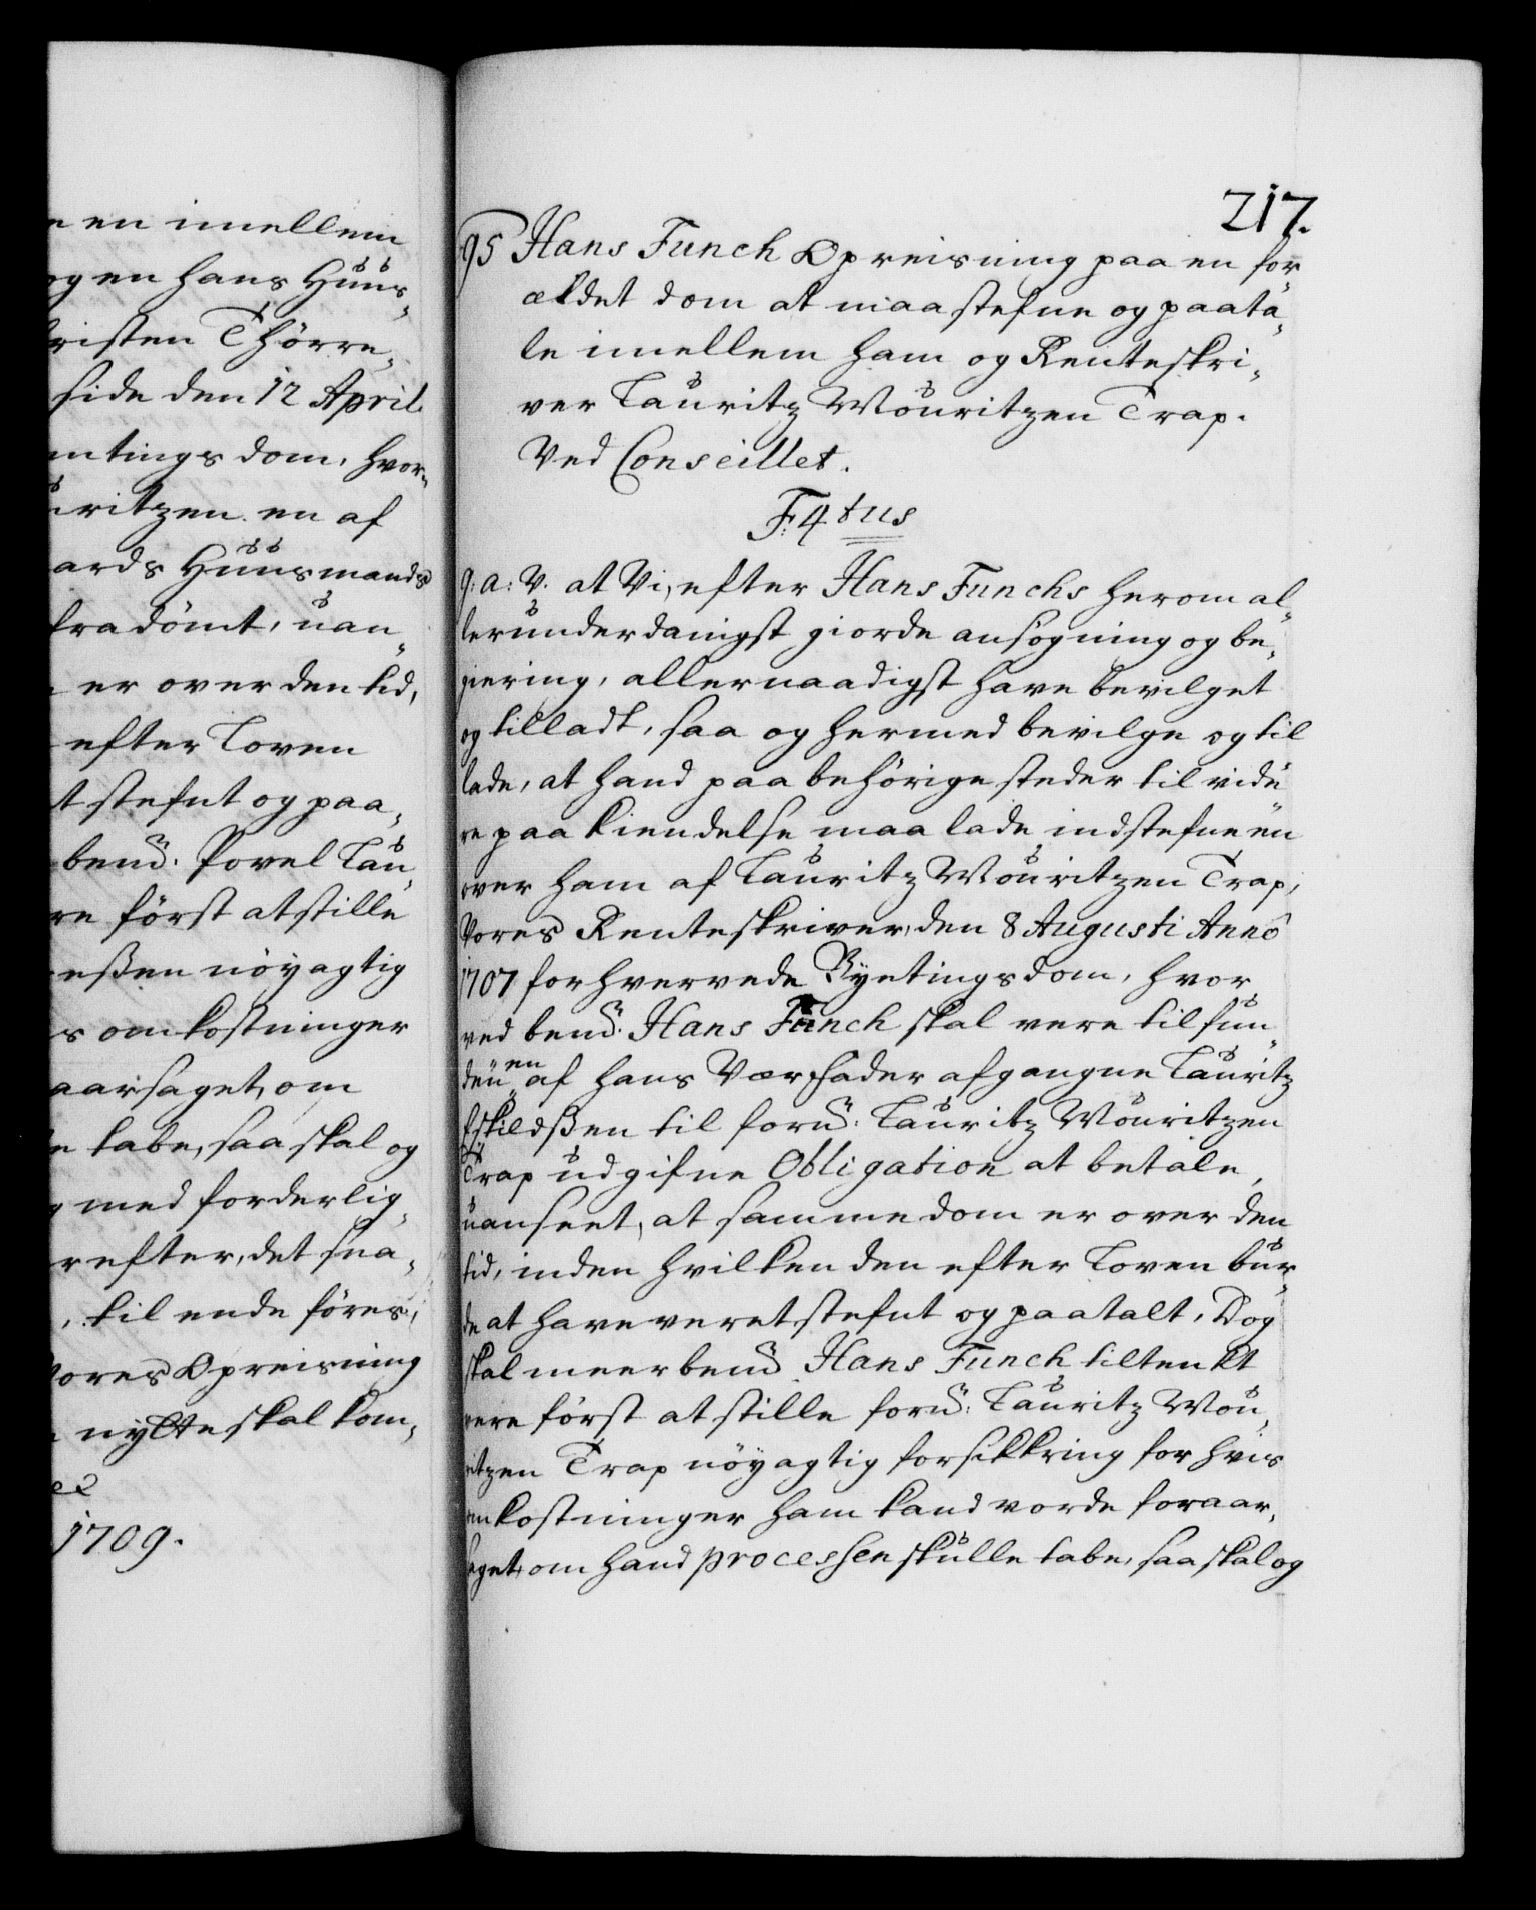 e en imellem
og en hans Huus„
risten Thörre„
side den 12 April.
mtings dom, hvor„
uritzen en af
ards Huusmands
fradömt, uan„
er over den tid,
efter Loven
t stefnt og paa„
bend: Povel Lau„
re först at stille
eßen nöyagtig
s omkostninger
aarsaget, om
e tabe, saa skal og
g med forderlig„
refter, det sna„
, til ende föres,
Vores Opreisning
nytte skal kom„
1709.
217.
95 Hans Funch Opreisning paa en for
ældet dom at maa stefne og paata„
le imellem ham og Renteskri„
ver Lauritz Mouritzen Trap.
Ved Conseillet.
F: 4tus
G: a: V. at Vi, efter Hans Funchs herom al„
lerunderdanigst giorde ansøgning og be„
giering, allernaadigst have bevilget
og tilladt, saa og hermed bevilge og til
lade, at hand paa behörige steder til vide
re paa kiendelse maa lade indstefne een
over ham af Lauritz Mouritzen Trap,
Vores Renteskriver, den 8 Augusti Anno
1707 forhvervede Byetingsdom, hvor
ved bend: Hans Funch skal vere tilfun„
den en af hans Værfader afgangne Lauritz
Eskildßen til fornd: Lauritz Mouritzen
Trap udgifne Obligation at betale,
uanseet, at samme dom er over den
tid, inden hvilken den efter Loven bur„
de at have veret stefnt og paatalt, Dog
skal meerbend Hans Funch tiltenkt
vere först at stille fornd: Lauritz Mou„
ritzen Trap nöyagtig forsikkring for hvis
omkostninger ham kand vorde foraar„
saget, om hand processen skulle tabe, saa skal og